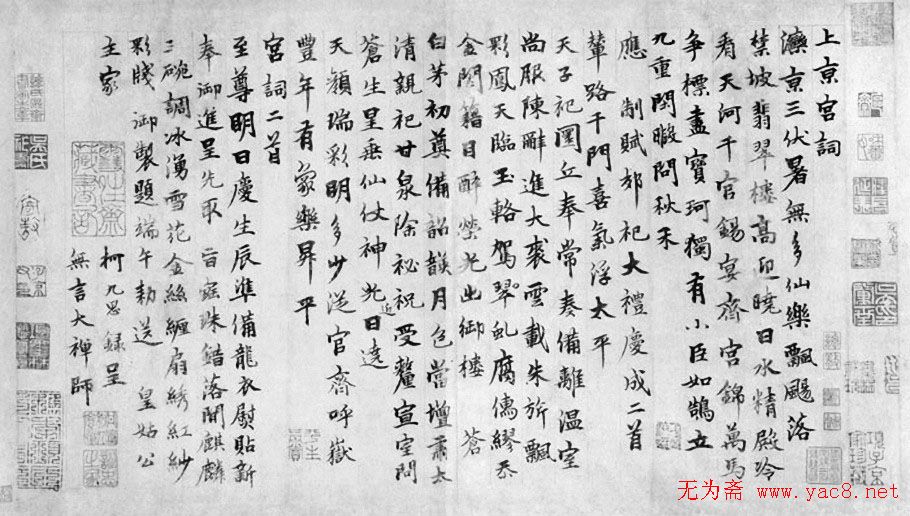 上京宫詞
灤京三伏暑無多仙樂飄颺落
禁坡翡翠樓高迎曉日水精殿冷
看天河千官錫宴齊宮錦萬馬
争標盡寶珂獨有小臣如鵠立
九重閣報問秋禾
應制賦郊祀大禮慶成二首
輦路千門喜氣浮太平
天子祀圜丘奉常奏備離温室
尚服陳辭進大裘雲載朱旂飄
彩鳳天臨玉輅駕翠虬腐儒繆忝
金閨籍目醉榮光出御樓 蒼
白茅初奠備韶韻月色當壇肅太
清親祀甘泉除祕祝受釐宣室問
蒼生星垂仙仗神光近日遶
天顔瑞彩明多少從官齊呼嶽
豐年有象樂昇平
宫詞二首
至尊明日慶生辰準備龍衣熨貼新
奉御進呈先取旨寶珠錯落閒麒麟
三碗調冰湧雪花金絲纏扇綉紅紗
彩牋御製題端午勑送皇姑公
主家
柯九思録呈
無言大禪師
无为斋 www.yac8.net